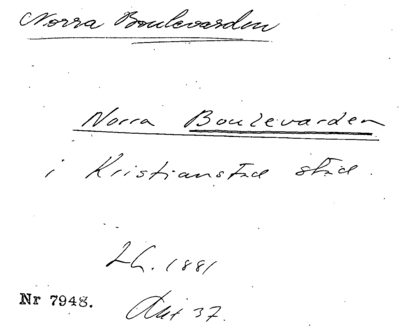 Norra Boulevarden
Norra Boulevarden
i Kristianstad stad.
1881
Nr 7948.
37.